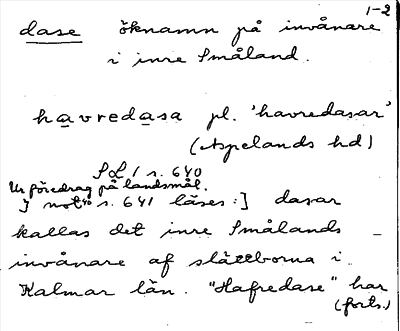 1-2
dase öknamn på invånare
i inre Småland.
havredasa pl. 'havredasar'
(Aspelands hd)
SL 1 s. 640
Ur föredrag på landsmål.
I not s. 641 läses:] dasar
kallas det inre Smålands
invånare af slättborna i
Kalmar län. "Hafredase" har
(forts.)